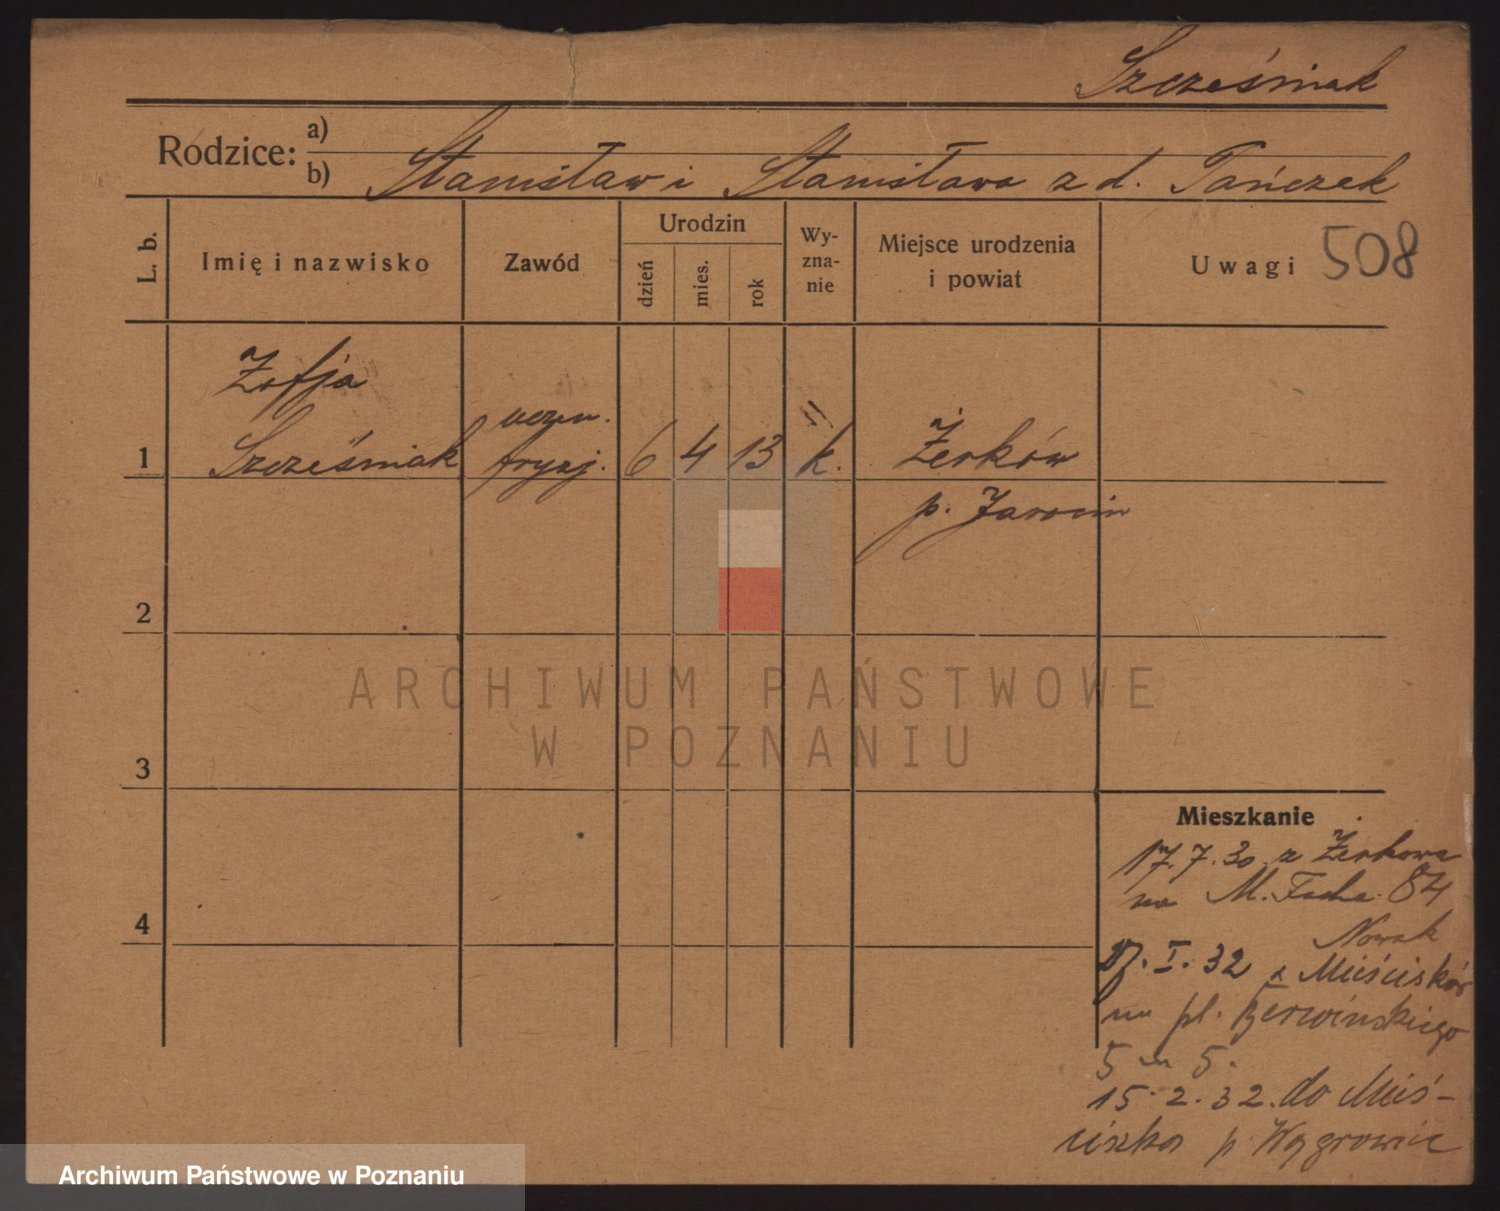 Szcześniak
Rodzice:
a)
b) Stanisław i Stanisława z d. Tańczak
L. b.
Imię i nazwisko
Zawód
Urodzin
dzień
mies.
rok
Wy-
zna-
nie
Miejsce urodzenia
i powiat
Uwagi 508
Zofja
uczn.
1 Szcześniak fryzj. 6 4 13 k. Żerków
p. Jarocin
2
3
4
Mieszkanie
17.7.30 z Żerkowa
na M. Focha 84
Nowak
I. 32 z
na pl. Berwińskiego
5 m 5.
15.2.32. do Mieś-
ciska p. Wągrowiec
ARCHIWUM PAŃSTWOWE
W POZNANIU
Archiwum Państwowe w Poznaniu